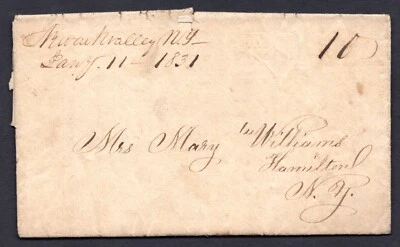 Newark Valley N.Y
Jany. 11 - 1831
10
Mrs Mary Williams
Hamilton
N. Y.